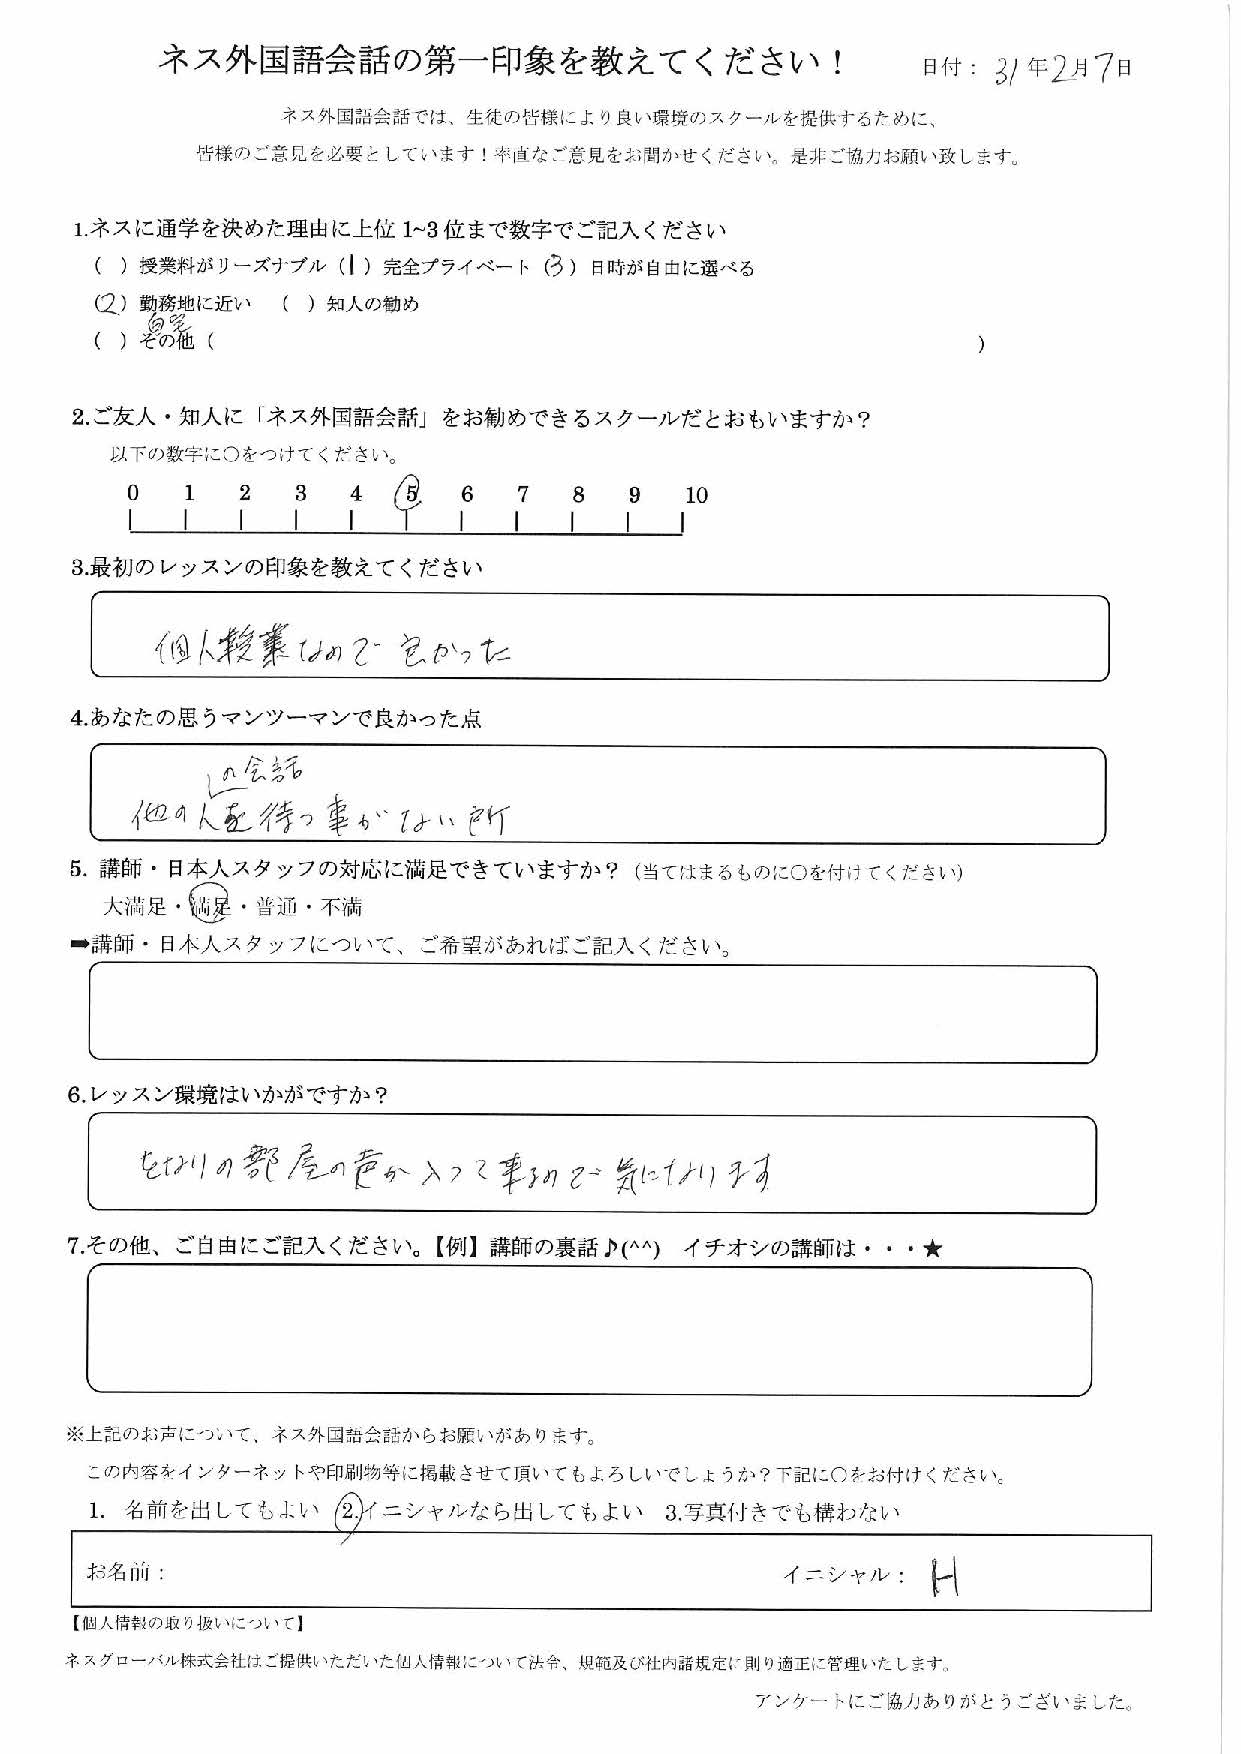 ネス外国語会話の第一印象を教えてください！
日付：31年2月7日
ネス外国語会話では、生徒の皆様により良い環境のスクールを提供するために、
皆様のご意見を必要としています！率直なご意見をお聞かせください。是非ご協力お願い致します。
1.ネスに通学を決めた理由に上位 1~3 位まで数字でご記入ください
（　）授業料がリーズナブル（1）完全プライベート（3）日時が自由に選べる
（2）勤務地に近い　（　）知人の勧め
自宅
（　）その他（　　　）
2.ご友人・知人に「ネス外国語会話」をお勧めできるスクールだとおもいますか？
以下の数字に〇をつけてください。
0 1 2 3 4 5 6 7 8 9 10
3.最初のレッスンの印象を教えてください
個人授業なので良かった
4.あなたの思うマンツーマンで良かった点
の会話
他の人を待つ事がない所
5. 講師・日本人スタッフの対応に満足できていますか？（当てはまるものに〇を付けてください）
大満足・満足・普通・不満
➡講師・日本人スタッフについて、ご希望があればご記入ください。
6.レッスン環境はいかがですか？
となりの部屋の声が入って来るので気になります
7.その他、ご自由にご記入ください。【例】講師の裏話♪(^^)　イチオシの講師は・・・★
※上記のお声について、ネス外国語会話からお願いがあります。
この内容をインターネットや印刷物等に掲載させて頂いてもよろしいでしょうか？下記に〇をお付けください。
1. 名前を出してもよい　2.イニシャルなら出してもよい　3.写真付きでも構わない
お名前：　イニシャル：H
【個人情報の取り扱いについて】
ネスグローバル株式会社はご提供いただいた個人情報について法令、規範及び社内諸規定に則り適正に管理いたします。
アンケートにご協力ありがとうございました。